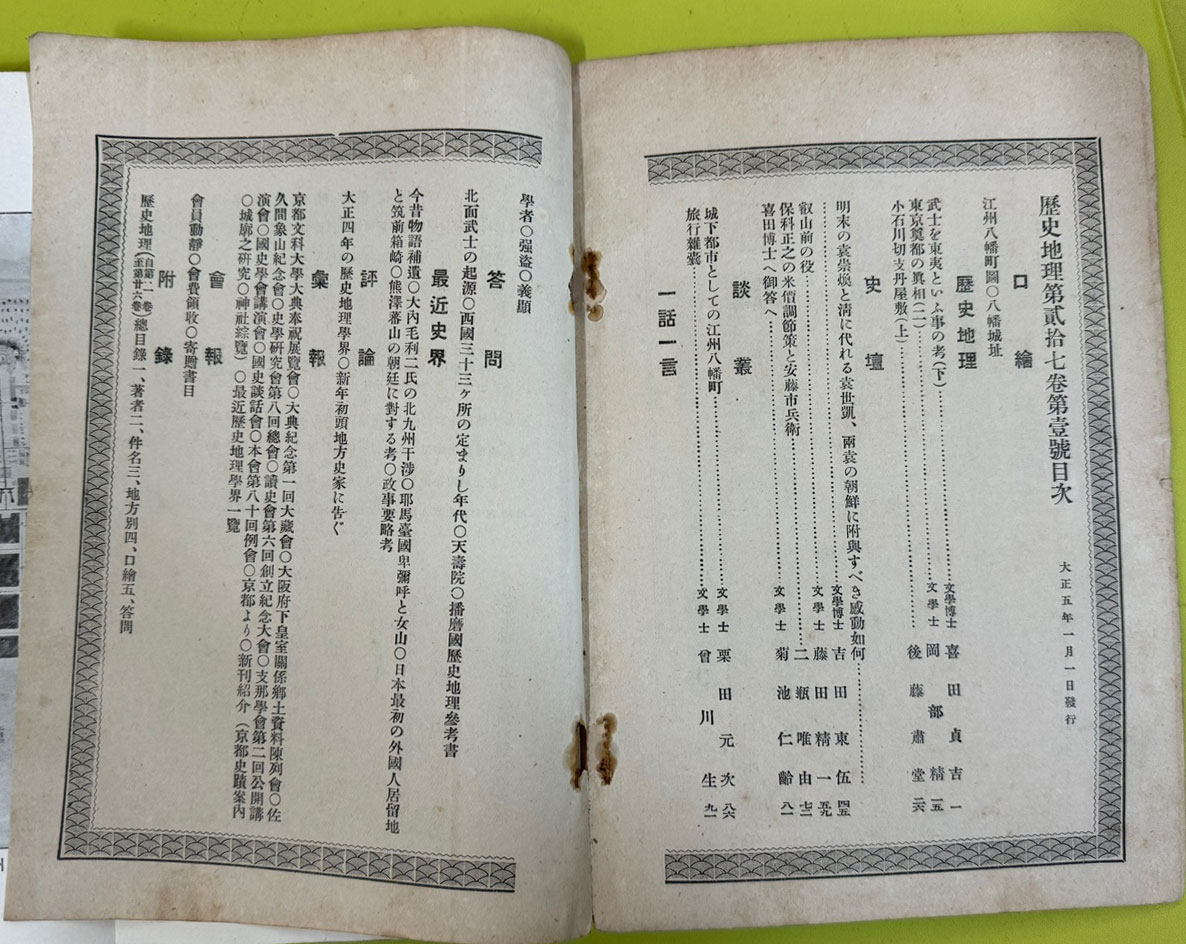 歷史地理第貳拾七卷第壹號目次
大正五年一月一日發行
口繪
江州八幡町圖〇八幡城址
歷史地理
武士を東夷といふ事の考(下)……文學博士 喜田貞吉 一
東京奠都の眞相(二)……文學士 岡部精一 一五
小石川切支丹屋敷(上)……後藤肅堂 二六
史壇
明末の袁崇煥と淸に代れる袁世凱、兩袁の朝鮮に附與すべき感動如何……
……文學博士 吉田東伍 四五
叡山前の役……文學士 藤田精一 五九
保科正之の米價調節策と安藤市兵衞……二瓶唯由 七二
喜田博士へ御答へ……文學士 菊池仁齡 八一
談叢
城下都市としての江州八幡町……文學士 栗田元次 八六
旅行雜囊……文學士 曾川生 九一
一話一言
學者〇强盜〇義顯
答問
北面武士の起源〇西國三十三ヶ所の定まりし年代〇天壽院〇播磨國歷史地理參考書
最近史界
今昔物語補遺〇大內毛利二氏の北九州干涉〇耶馬臺國卑彌呼と女山〇日本最初の外國人居留地
と筑前箱崎〇熊澤蕃山の朝廷に對する考〇政事要略考
評論
大正四年の歷史地理學界〇新年初頭地方史家に吿ぐ
彙報
京都文科大學大典奉祝展覽會〇大典紀念第一回大藏會〇大阪府下皇室關係鄕土資料陳列會〇佐
久間象山紀念會〇史學硏究會第八回總會〇讀史會第六回創立紀念大會〇支那學會第二回公開講
演會〇國史學會講演會〇國史談話會〇本會第八十回例會〇京都より〇新刊紹介(京都史蹟案內
〇城廓之硏究〇神社綜覽)〇最近歷史地理學界一覽
會報
會員動靜〇會費領收〇寄贈書目
附錄
歷史地理(自第二一卷至第廿六卷)總目錄 一、著者二、件名三、地方別四、口繪五、答問